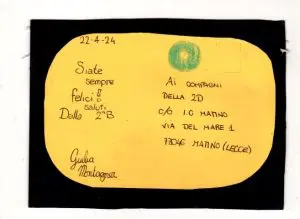 22-4-24
Siate
sempre
felici!
saluti
Dalla 2ªB
Giulia
Montagna
Ai COMPAGNI
DELLA 2D
C/O I.C MATINO
VIA DEL MARE 1
73046 MATINO (LECCE)